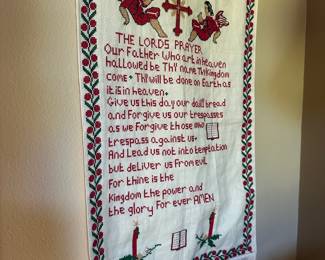 THE LORDS PRAYER
Our Father Who art in heaven
hallowed be Thy name Thy Kingdom
come + Thy will be done on Earth as
it is in heaven.
Give us this day our daily bread
and Forgive us our trespasses
as we Forgive those who
trespass against us.
And Lead us not into temptation
but deliver us From evil
For thine is the
Kingdom the power and
the glory For ever AMEN